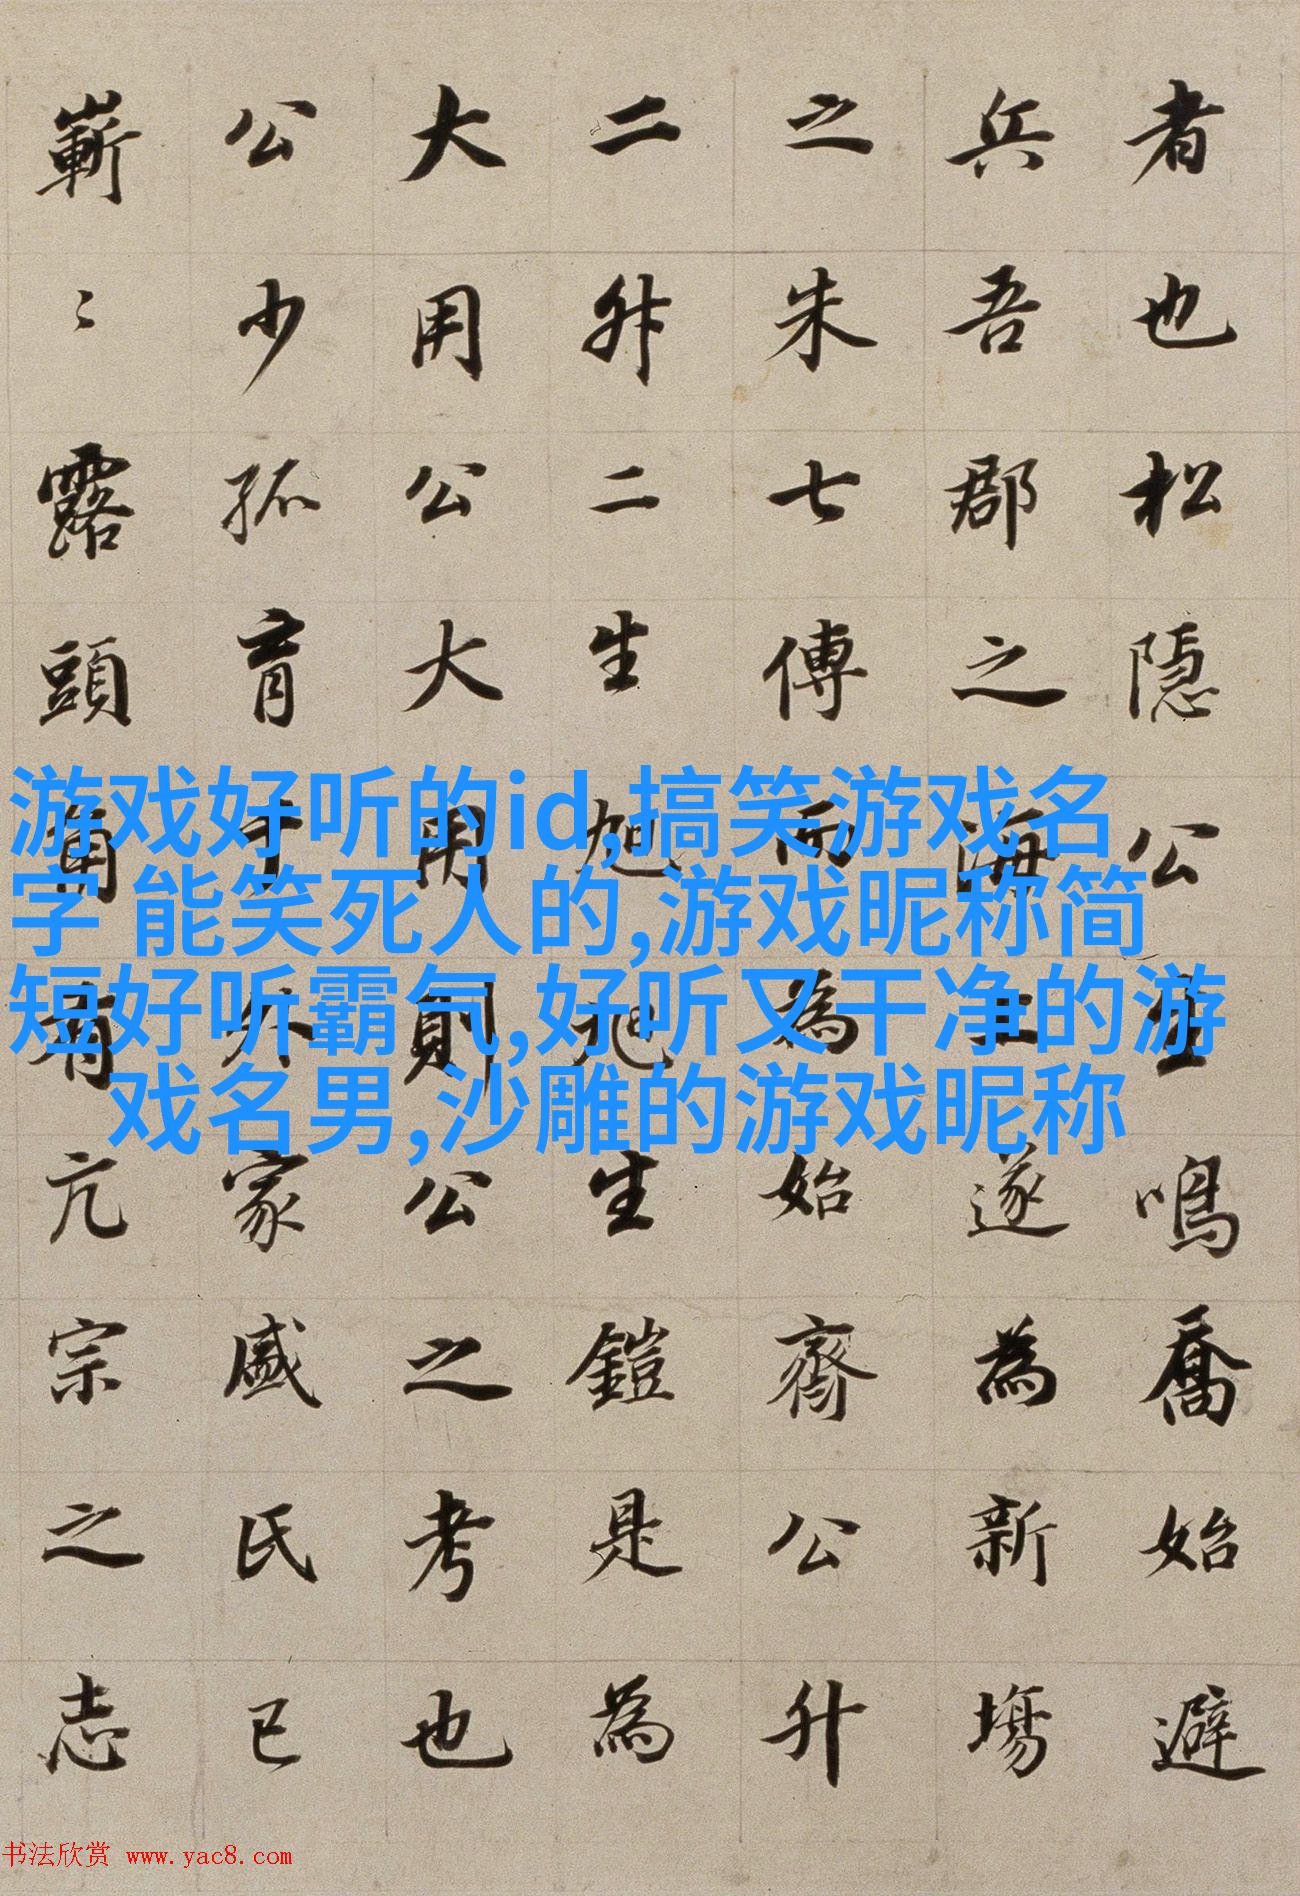 者也松隱公至鳴喬始避
兵吾郡之海上遂為新塲
之朱七傅而為始齊公升
二升二生旭旭生鎧是為
大用公大用則公之考也
公少孤育于外家盛氏已
嶄〻露頭角有亢宗之志
游戏好听的id,搞笑游戏名
字 能笑死人的,游戏昵称简
短好听霸气,好听又干净的游
戏名男,沙雕的游戏昵称
书法欣赏 www.yac8.com